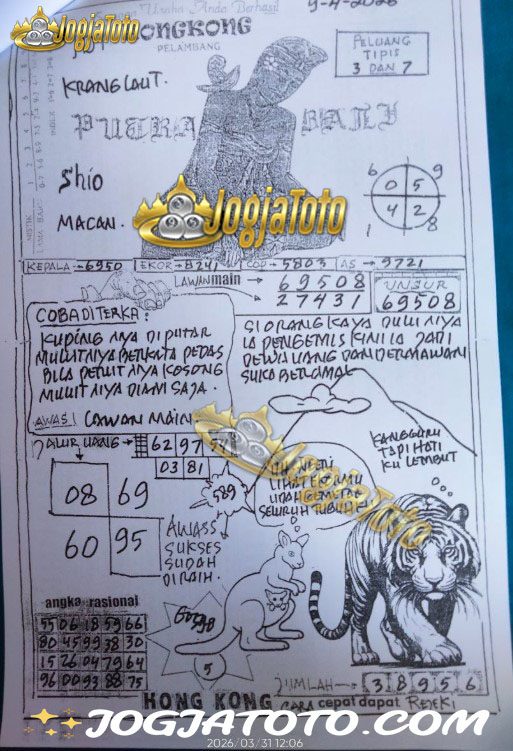 Usaha Anda Berhasil
9-4-2026
JogjaToto
HONGKONG
PELAMBANG
PELUANG
TIPIS
3 DAN 7
KRANG LAUT.
PUTRA BALI
Shio
MACAN.
6 9
0 5
4 2
1 8
JogjaToto
KEPALA → 6950 EKOR → 8241 COP → 5803 AS → 9721
LAWAN main → 69508
→ 27431
UNSUR
69508
COBA DITERKA:
KUPING NYA DI PUTAR
MULUTNYA BERKATA PEDAS
BILA PERUTNYA KOSONG
MULUTNYA DIAM SAJA.
SI ORANG KAYA DULUNYA
IA PENGEMIS KINI IA JADI
DEWA UANG DAN DERMAWAN
SUKA BERAMAL
AWAS! LAWAN MAIN
JALUR UANG → 62 97
03 81
JogjaToto
KANGGURU
TAPI HATI
KU LEMBUT
LIHAT
UDAH GEMETAR
SELURUH TUBUH
589
08 69
60 95
AWASS
SUKSES
SUDAH
DIRAIH.
angka rasional
55 06 18 59 66
80 45 99 38 30
15 26 04 79 64
96 00 93 88 75
5
JUMLAH → 3 8 9 5 6
HONG KONG
CARA cepat dapat REJEKI
JOGJATOTO.COM
2026/03/31 12:06